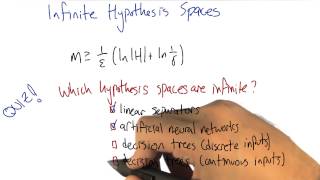 Infinite Hypothesis Spaces
m ≥ 1/ε (ln |H| + ln 1/δ)
QUIZ! Which hypothesis spaces are infinite?
linear separators
artificial neural networks
decision trees (discrete inputs)
decision trees (continuous inputs)